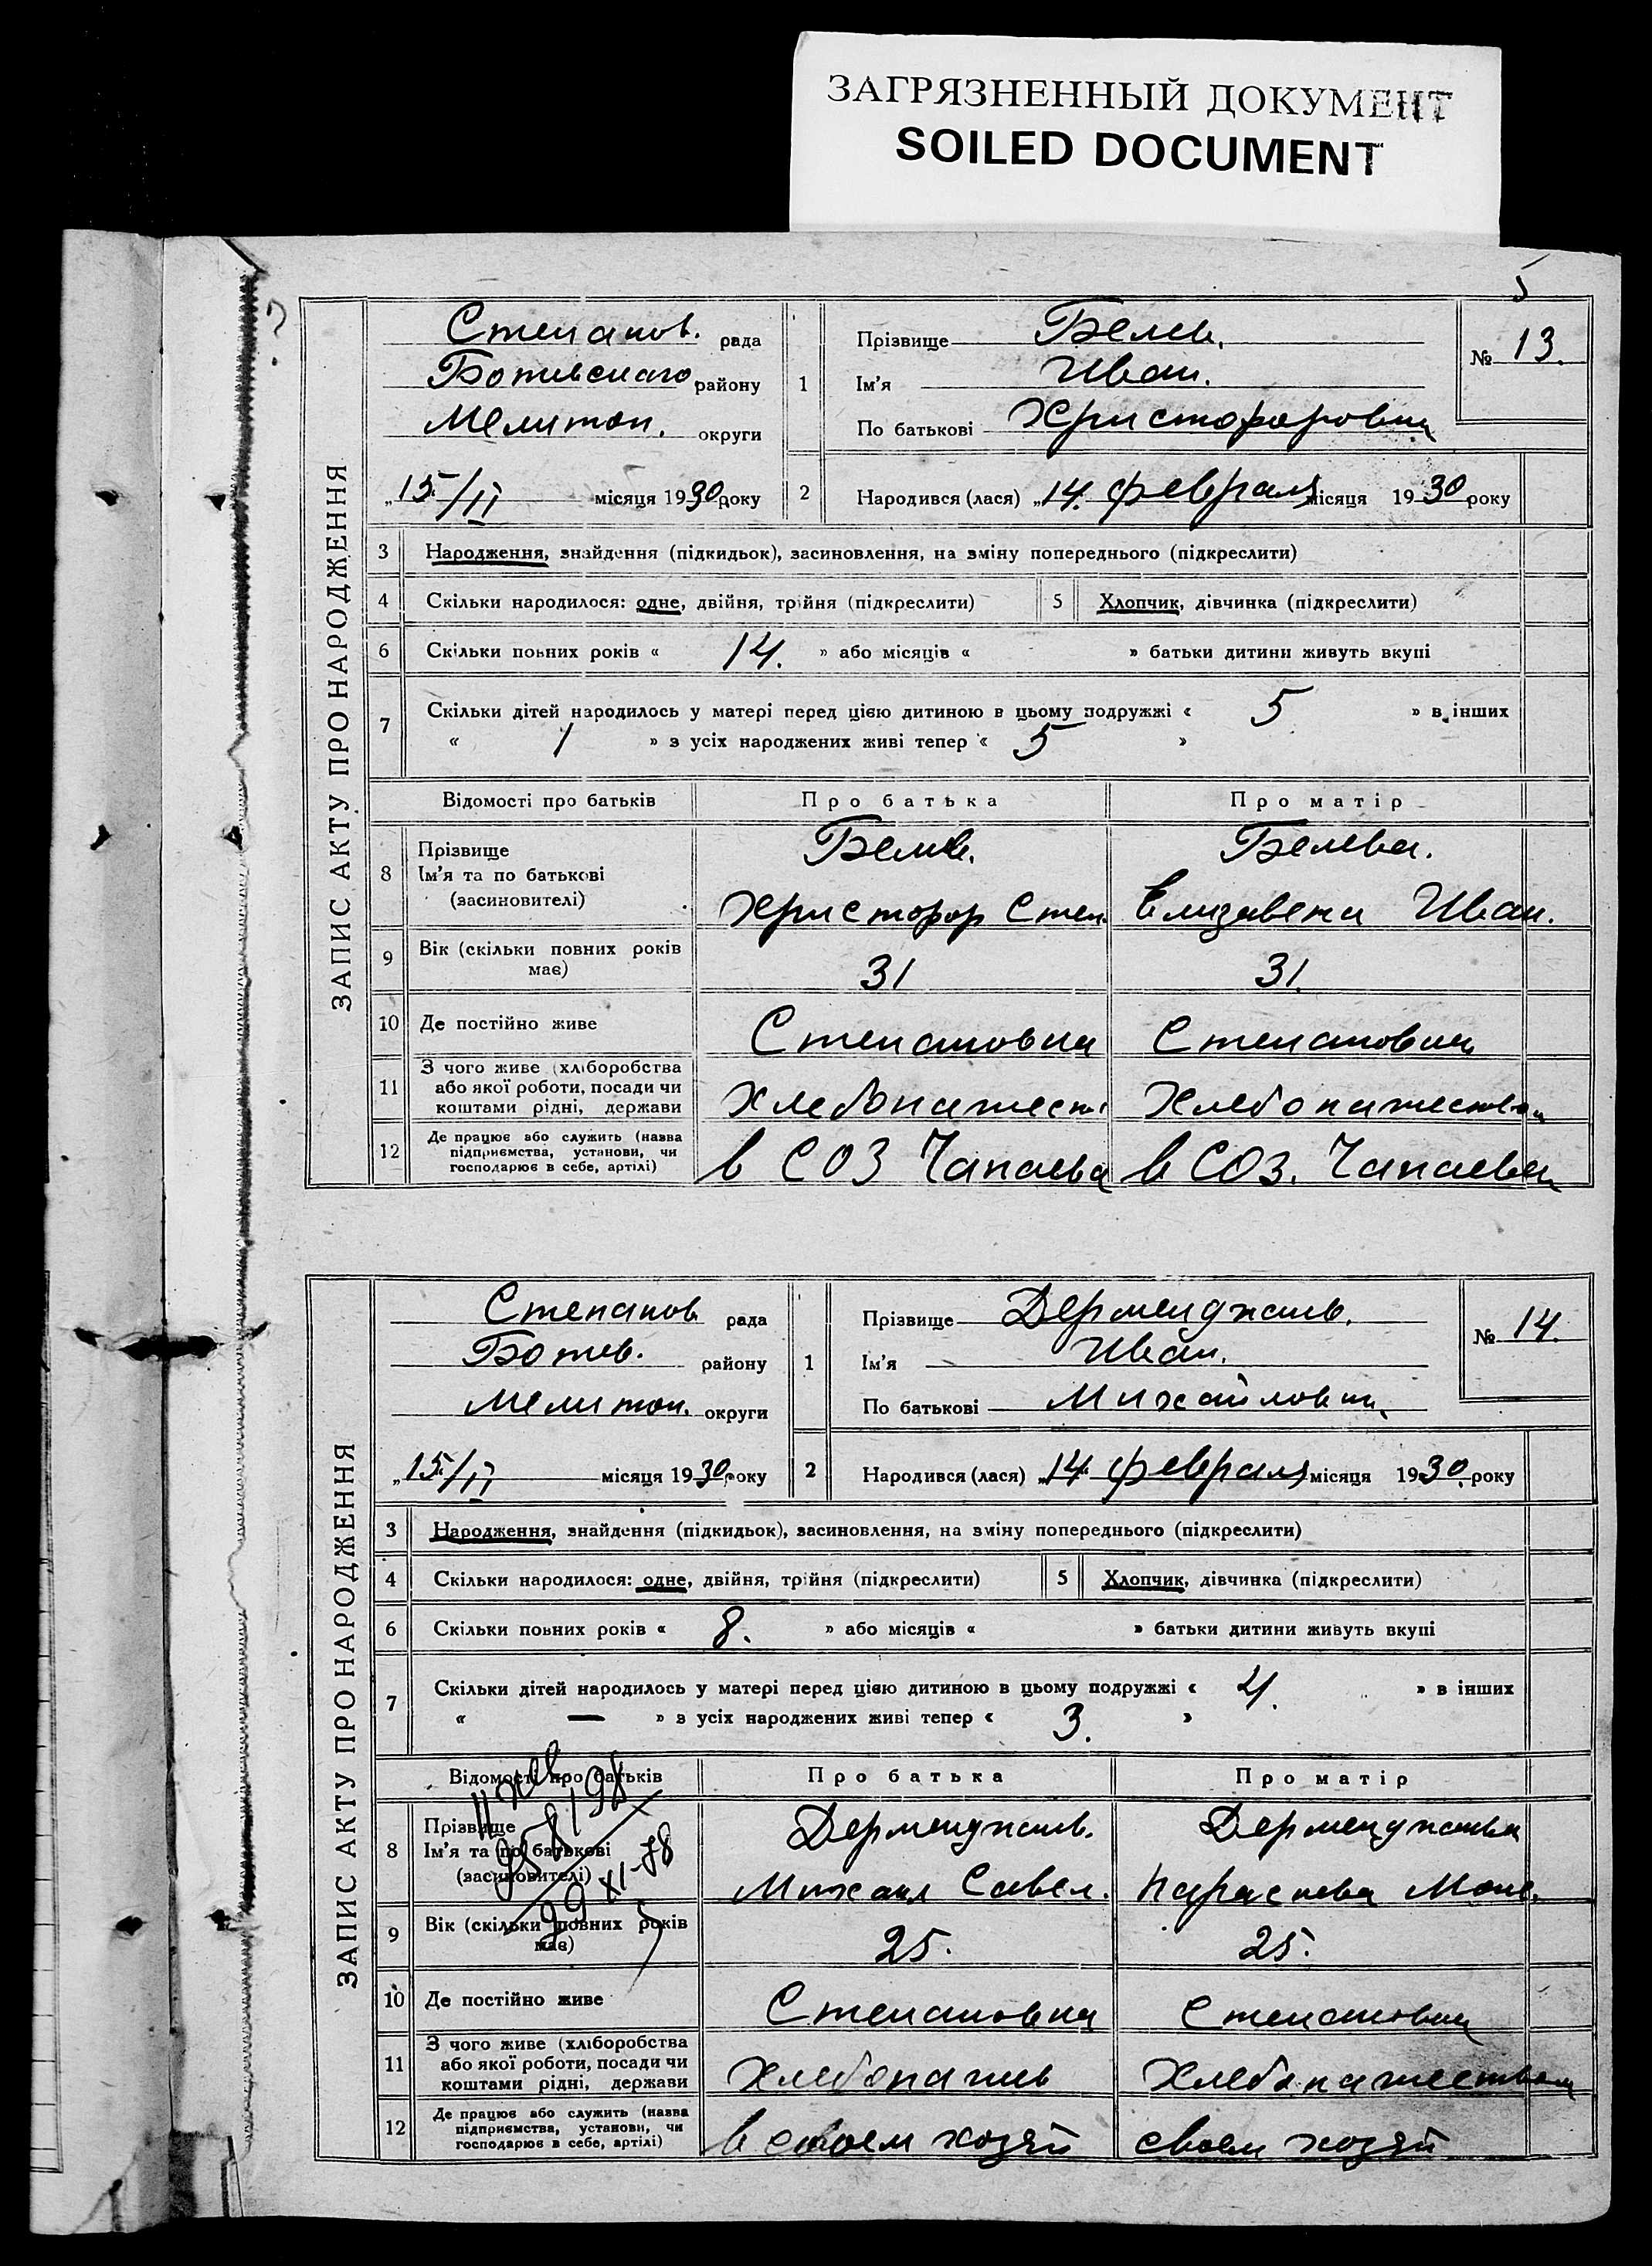 ЗАГРЯЗНЕННЫЙ ДОКУМЕНТ
SOILED DOCUMENT
5
?
ЗАПИС АКТУ ПРО НАРОДЖЕННЯ
Степанов. рада
Ботивского району
Мелитоп. округи
„15/II місяця 1930 року
1 Прізвище Белев.
Ім'я Иван.
По батькові Христофорович
№ 13.
2 Народився (лася) „14. февраля місяця 1930 року
3 Народження, знайдення (підкидьок), засиновлення, на зміну попереднього (підкреслити)
4 Скільки народилося: одне, двійня, трійня (підкреслити) 5 Хлопчик, дівчинка (підкреслити)
6 Скільки повних років « 14. » або місяців « » батьки дитини живуть вкупі
7 Скільки дітей народилось у матері перед цією дитиною в цьому подружжі « 5 » в інших
« 1 » з усіх народжених живі тепер « 5 »
Відомості про батьків Про батька Про матір
8 Прізвище Белев. Белева.
Ім'я та по батькові
(засиновителі) Христофор Степ. Елизавета Иван.
9 Вік (скільки повних років має) 31 31.
10 Де постійно живе Степановка Степановка
11 З чого живе (хліборобства
або якої роботи, посади чи
коштами рідні, держави Хлебопашест Хлебопашеством
12 Де працює або служить (назва
підприємства, установи, чи
господарює в себе, артілі) в СОЗ Чапаева в СОЗ. Чапаева
ЗАПИС АКТУ ПРО НАРОДЖЕННЯ
Степанов рада
Ботев. району
Мелитоп. округи
„15/II місяця 1930 року
1 Прізвище Дерменджив.
Ім'я Иван.
По батькові Михайлович
№ 14.
2 Народився (лася) „14. февраля місяця 1930 року
3 Народження, знайдення (підкидьок), засиновлення, на зміну попереднього (підкреслити)
4 Скільки народилося: одне, двійня, трійня (підкреслити) 5 Хлопчик, дівчинка (підкреслити)
6 Скільки повних років « 8. » або місяців « » батьки дитини живуть вкупі
7 Скільки дітей народилось у матері перед цією дитиною в цьому подружжі « 4. » в інших
« — » з усіх народжених живі тепер « 3. »
Відомості про батьків Про батька Про матір
8 Прізвище Дерменджив. Дерменджива
Ім'я та по батькові
(засиновителі) Михаил Савел. Параскева
9 Вік (скільки повних років має) 25. 25.
10 Де постійно живе Степановка Степановка
11 З чого живе (хліборобства
або якої роботи, посади чи
коштами рідні, держави Хлебопашев Хлебопашеством
12 Де працює або служить (назва
підприємства, установи, чи
господарює в себе, артілі) в своем хозяй своем хозяй